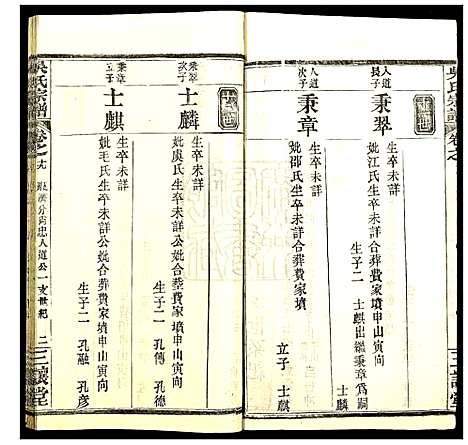 吳氏宗譜
人道
長子
秉翠
生卒未詳
妣江氏生卒未詳合葬費家墳申山寅向
生子二
士麒出繼秉章爲嗣
士麟
人道
次子
秉章
生卒未詳
妣邵氏生卒未詳合葬費家墳
立子
士麒
三讓堂
秉翠
次子
士麟
生卒未詳
妣虞氏生卒未詳公妣合葬費家墳申山寅向
生子二
孔傳
孔德
秉章
次子
士麒
生卒未詳
妣毛氏生卒未詳公妣合葬費家墳申山寅向
生子二
孔融
孔彥
吳氏宗譜
卷之十九
分尚忠人道公一支世紀
二
三讓堂